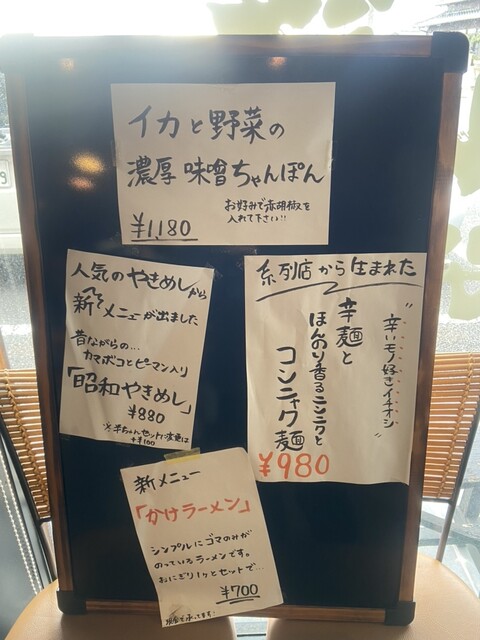 イカと野菜の
濃厚味噌ちゃんぽん
お好みで赤胡椒を
入れて下さい!!
¥1,180
人気のやきめしから
新メニューが出ました
昔ながらの…
カマボコとピーマン入り
「昭和やきめし」
¥880
※半ちゃんセットに変更は
+¥100
系列店から生まれた
"辛いモノ好きイチオシ"
辛麺と
ほんのり香るニンニクと
コンニャク麺
¥980
新メニュー
「かけラーメン」
シンプルにゴマのみが
のっているラーメンです。
おにぎり1ケとセットで…
¥700